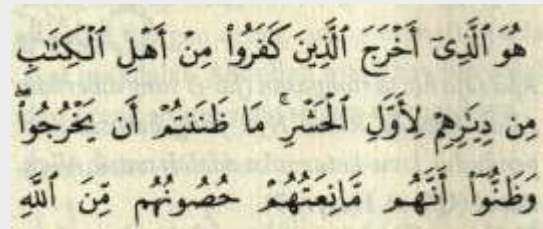 هُوَ ٱلَّذِىٓ أَخْرَجَ ٱلَّذِينَ كَفَرُوا۟ مِنْ أَهْلِ ٱلْكِتَـٰبِ
مِن دِيَـٰرِهِمْ لِأَوَّلِ ٱلْحَشْرِ ۚ مَا ظَنَنتُمْ أَن يَخْرُجُوا۟ ۖ
وَظَنُّوٓا۟ أَنَّهُم مَّانِعَتُهُمْ حُصُونُهُم مِّنَ ٱللَّهِ